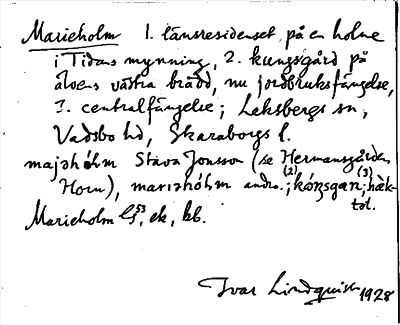 Marieholm 1. länsresidenset på en holme
i Tidans mynning, 2. kungsgård på
älvens västra brädd, nu jordbruksfängelse,
3. centralfängelse; Leksbergs sn,
Vadsbo hd, Skaraborgs l.
majəhólm Stava Jonsson (se Hermansgården
Horn), mariəhólm andra.; kóŋsgan; häk-
(2) (3)
tət.
Marieholm G 53, ek, kb.
Ivar Lindquist 1928